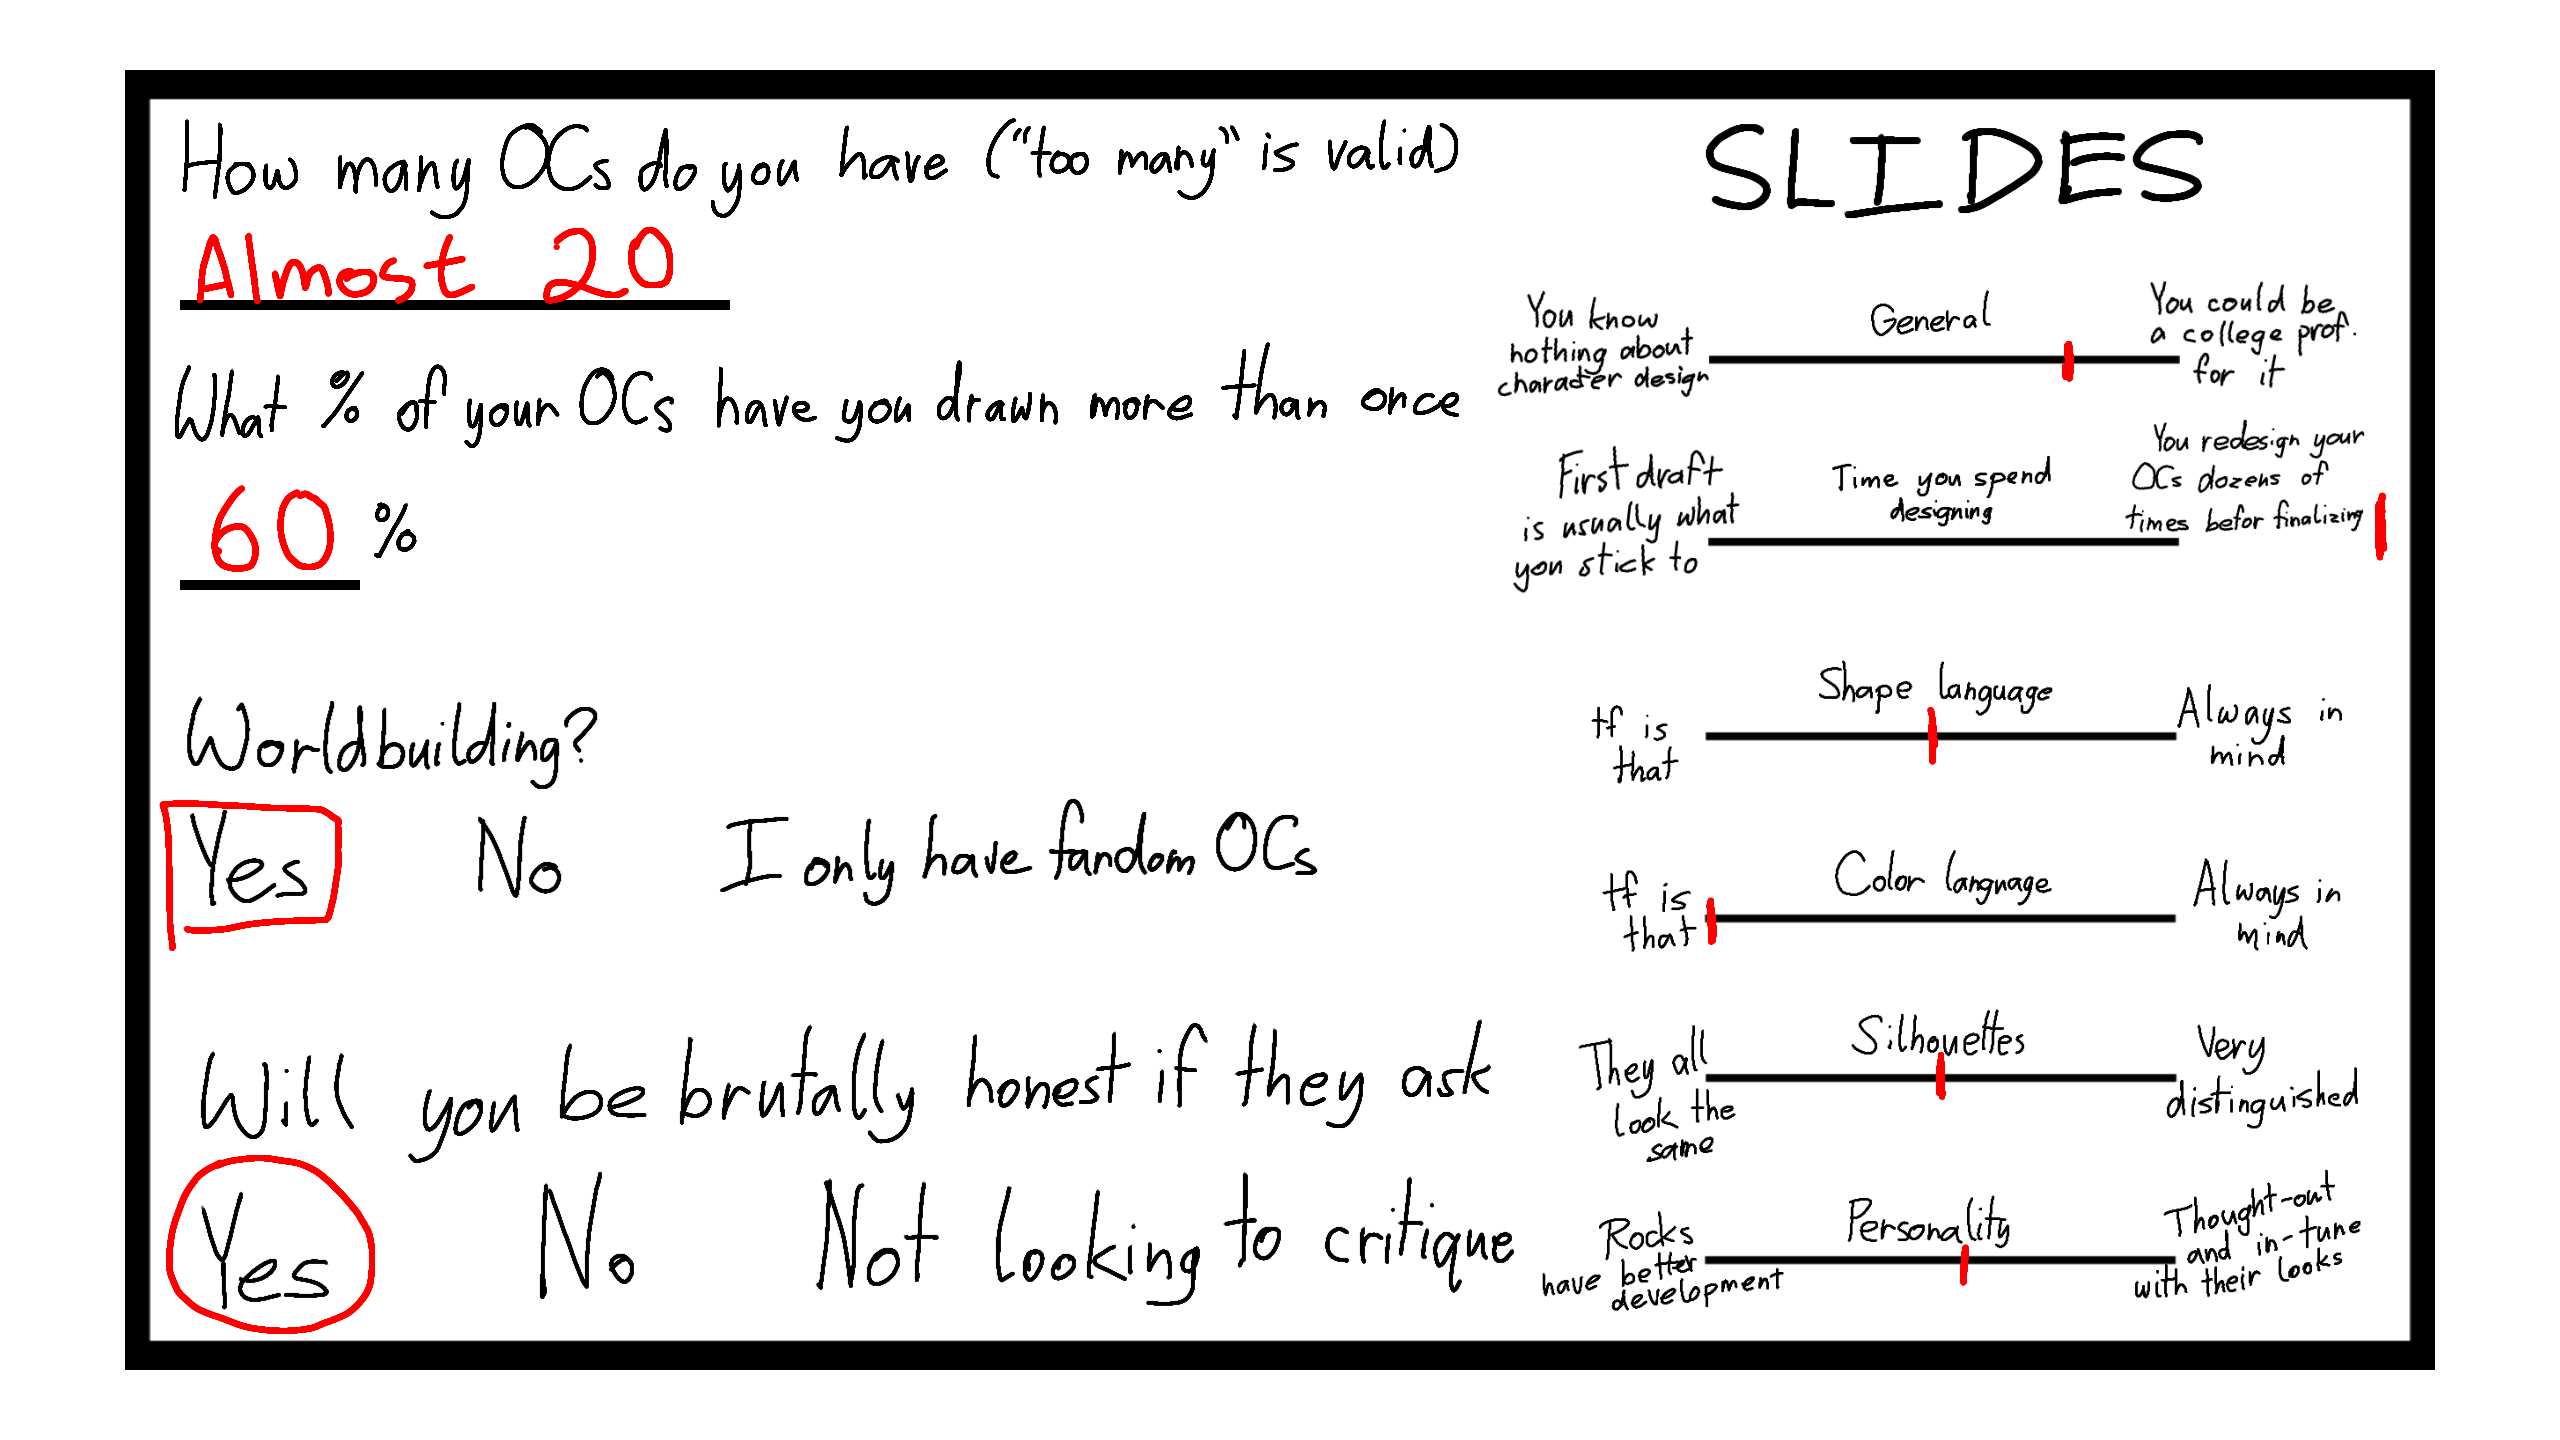 How many OCs do you have ("too many" is valid)
Almost 20
What % of your OCs have you drawn more than once
60 %
Worldbuilding?
Yes No I only have fandom OCs
Will you be brutally honest if they ask
Yes No Not looking to critique
SLIDES
General
You know
nothing about
character design
You could be
a college prof.
for it
Time you spend
designing
First draft
is usually what
you stick to
You redesign your
OCs dozens of
times befor finalizing
Shape language
tf is
that
Always in
mind
Color language
tf is
that
Always in
mind
Silhouettes
They all
look the
same
Very
distinguished
Personality
Rocks
have better
development
Thought-out
and in-tune
with their looks